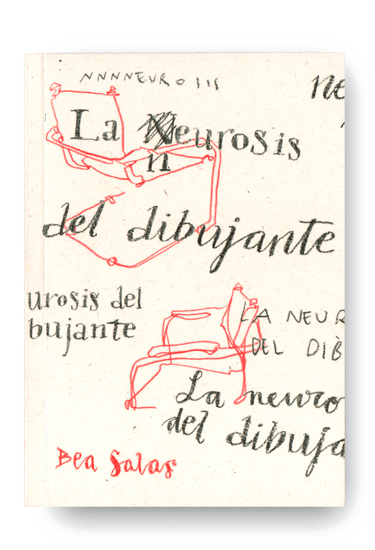 NNNNEUROSIS
ne
La Neurosis
n
del dibujante
urosis del
bujante
LA NEUR
DEL DIB
La neuro
del dibuja
Bea Salas